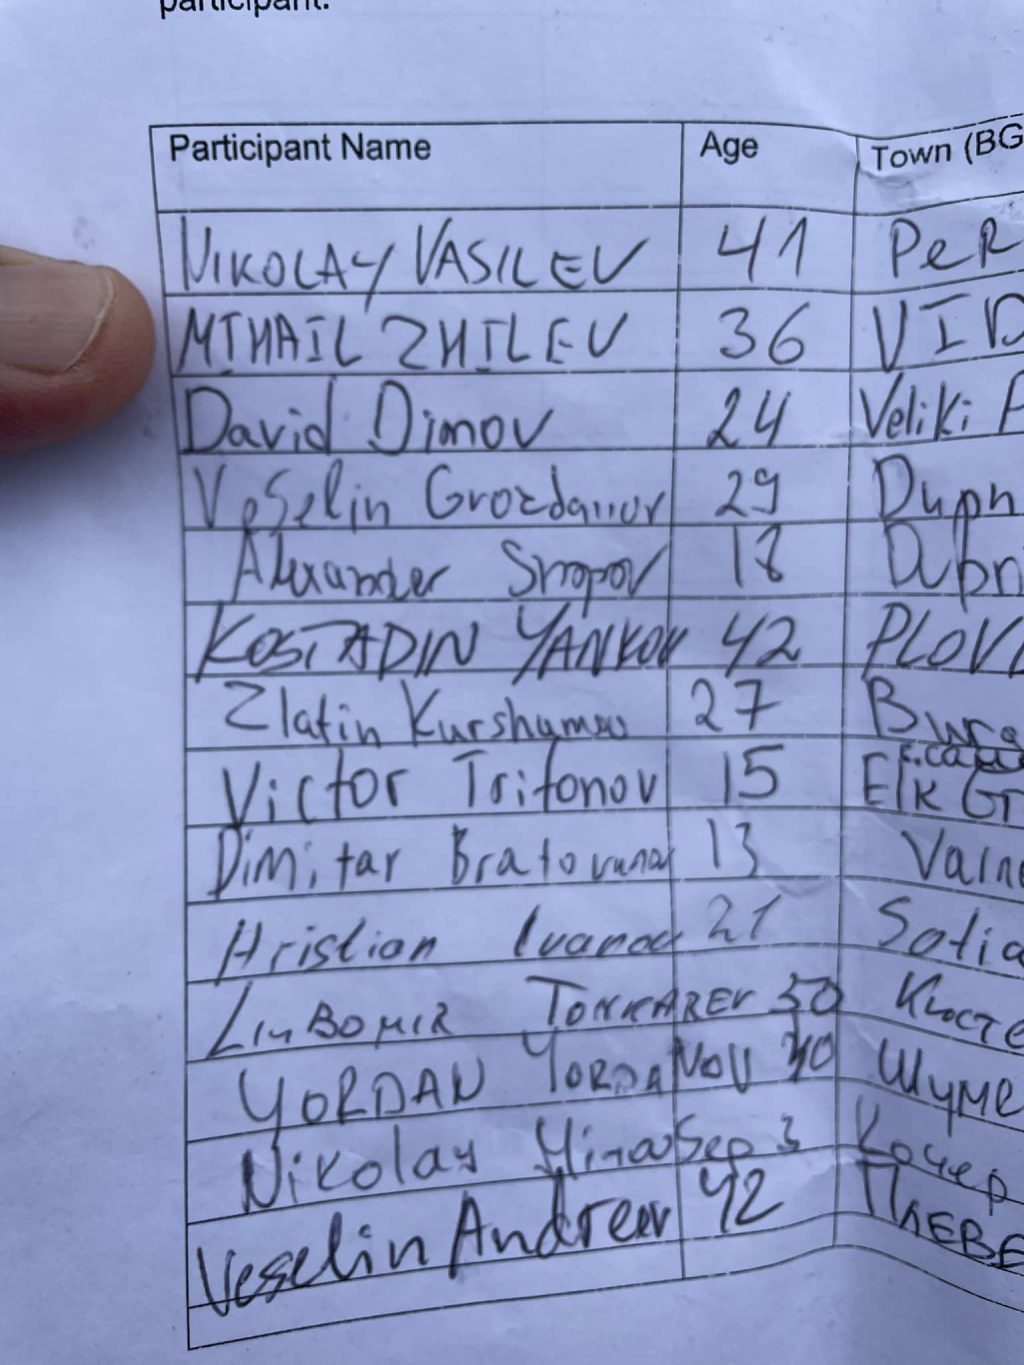 participant.
Participant Name Age Town (BG
NIKOLAY VASILEV 41 PeR
MIHAIL ZHILEV 36 VID
David Dimov 24 Veliki P
Veselin Grozdanov 29 Dupn
Alexander 18 Dubn
KOSTADIN YANKOV 42 PLOVI
Zlatin 27 Burga
Victor Trifonov 15 Elk Gr
Dimitar Bratovanov 13 Varn
Hristian Ivanov 21 Sofia
LIUBOMIR 50 Кюсте
YORDAN YORDANOV 40 Шуме
Nikolay 3
Veselin Andreev 42 ПлЕВЕ